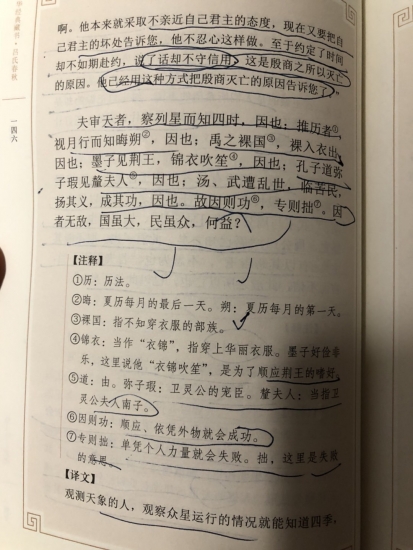 啊。他本来就采取不亲近自己君主的态度，现在又要把自
己君主的坏处告诉您，他不忍心这样做。至于约定了时间
却不如期赴约，说了话却不守信用，这是殷商之所以灭亡
的原因。他已经用这种方式把殷商灭亡的原因告诉您了。”
夫审天者，察列星而知四时，因也；推历者①，
视月行而知晦朔②，因也；禹之裸国③，裸入衣出，
因也；墨子见荆王，锦衣吹笙④，因也；孔子道弥
子瑕见釐夫人⑤，因也；汤、武遭乱世，临苦民，
扬其义，成其功，因也。故因则功⑥，专则拙⑦。因
者无敌，国虽大，民虽众，何益？
【注释】
①历：历法。
②晦：夏历每月的最后一天。朔：夏历每月的第一天。
③裸国：指不知穿衣服的部族。
④锦衣：当作“衣锦”，指穿上华丽衣服。墨子好俭非
乐，这里说他“衣锦吹笙”，是为了顺应荆王的嗜好。
⑤道：由。弥子瑕：卫灵公的宠臣。釐夫人：当指卫
灵公夫人南子。
⑥因则功：顺应、依凭外物就会成功。
⑦专则拙：单凭个人力量就会失败。拙，这里是失败
的意思。
【译文】
观测天象的人，观察众星运行的情况就能知道四季，
经典藏书·吕氏春秋
一四六